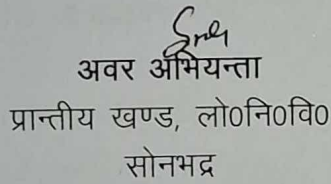 अवर अभियन्ता
प्रान्तीय खण्ड, लो०नि०वि०
सोनभद्र